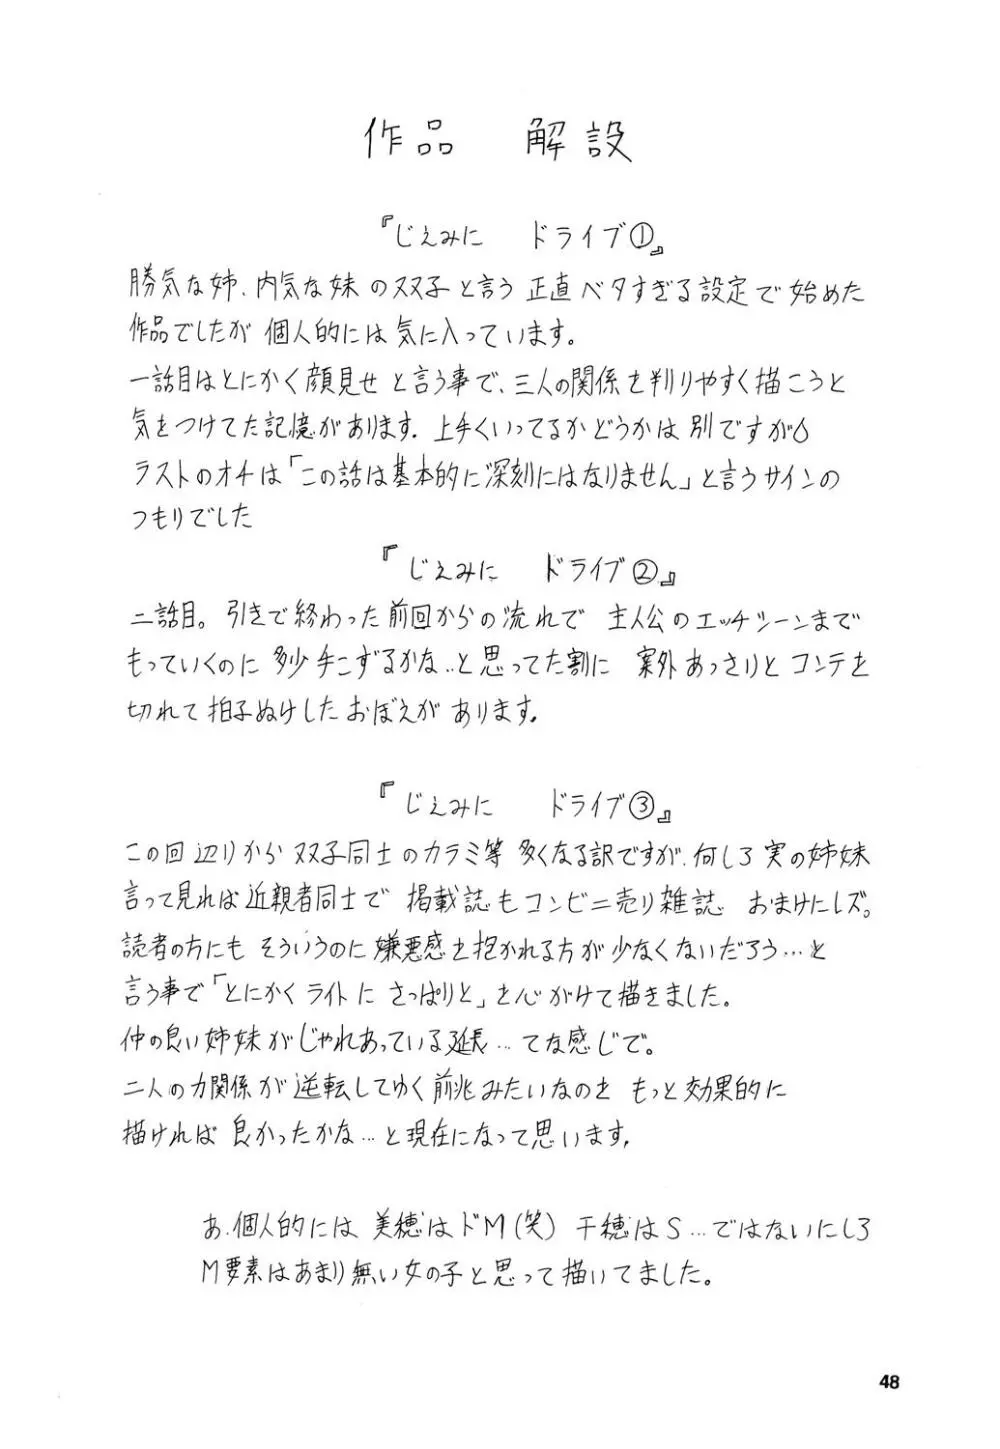 作品 解設
『じえみに ドライブ①』
勝気な姉、内気な妹の双子と言う 正直ベタすぎる設定で始めた
作品でしたが 個人的には気に入っています。
一話目はとにかく顔見せと言う事で、三人の関係を判りやすく描こうと
気をつけてた記憶があります。上手くいってるかどうかは別ですが
ラストのオチは「この話は基本的に深刻にはなりません」と言うサインの
つもりでした
『じえみに ドライブ②』
二話目。引きで終わった前回からの流れで 主人公のエッチシーンまで
もっていくのに 多少手こずるかな…と思ってた割に 案外あっさりとコンテを
切れて拍子ぬけしたおぼえがあります。
『じえみに ドライブ③』
この回辺りから双子同士のカラミ等 多くなる訳ですが、何しろ実の姉妹
言って見れば近親者同士で 掲載誌もコンビニ売り雑誌 おまけにレズ。
読者の方にも そういうのに嫌悪感を抱かれる方が少なくないだろう…と
言う事で「とにかくライトに さっぱりと」を心がけて描きました。
仲の良い姉妹がじゃれあっている延長…てな感じで。
二人の力関係が逆転してゆく前兆みたいなのを もっと効果的に
描ければ良かったかな…と現在になって思います。
あ、個人的には美穂はドM(笑) 千穂はS…ではないにしろ
M要素はあまり無い女の子と思って描いてました。
48